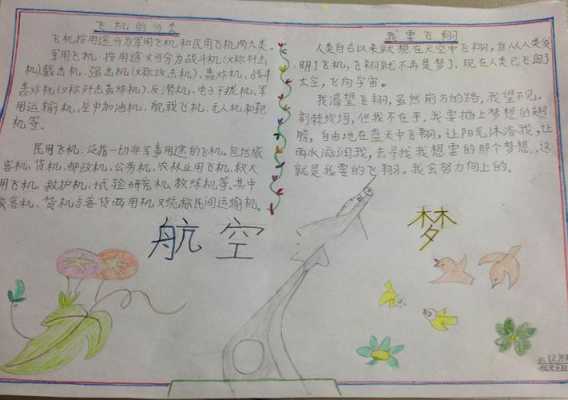 飞机的分类
飞机按用途分为军用飞机和民用飞机两大类。
军用飞机,按用途又可分为战斗机(又称歼击
机)截击机、强击机(又称攻击机)、轰炸机、战斗
轰炸机(又称歼击轰炸机)、反潜机、电子干扰机、军
用运输机、空中加油机、舰载飞机、无人机和靶
机等。
民用飞机,泛指一切非军事用途的飞机,包括旅
客机、货机、邮政机、公务机、农林业用飞机、救火
用飞机、救护机、试验研究机、教练机等。其中
旅客机、货机与客货两用机又统称民间运输机。
我要飞翔
人类自古以来就想在天空中飞翔,自从人类发
明了飞机,飞翔就不再是梦了,现在人类已飞向了
太空,飞向宇宙。
我渴望飞翔,虽然前方的路,我望不见,
荆棘坎坷,但我不在乎,我要插上梦想的翅
膀,自由地在蓝天中飞翔,让阳光沐浴我,让
雨水滋润我,去寻找我想要的那个梦想,这
就是我要的飞翔。我会努力向上的。
航空
梦